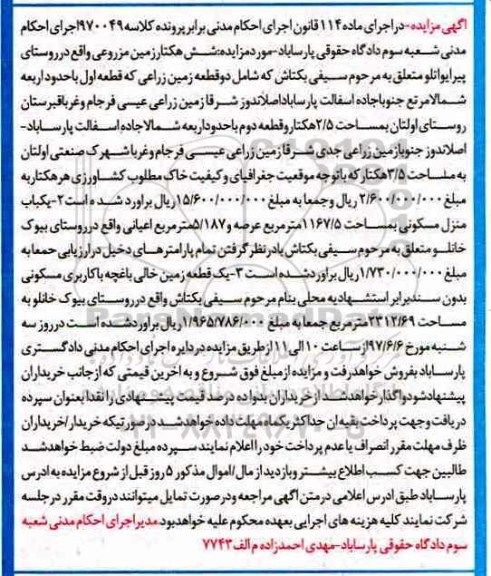 آگهی مزایده - در اجرای ماده ۱۱۴ قانون اجرای احکام مدنی برابر پرونده کلاسه ۹۷۰۰۴۹ اجرای احکام
مدنی شعبه سوم دادگاه حقوقی پارساباد - مورد مزایده: شش هکتار زمین مزروعی واقع در روستای
پیرایواتلو متعلق به مرحوم سیفی بکتاش که شامل دو قطعه زمین زراعی که قطعه اول با حدود اربعه
شمالا مرتع جنوبا جاده اسفالت پارساباد اصلاندوز شرقا زمین زراعی عیسی فرجام و غربا قبرستان
روستای اولتان بمساحت ۲/۵ هکتار و قطعه دوم با حدود اربعه شمالا جاده اسفالت پارساباد -
اصلاندوز جنوبا زمین زراعی جدی شرقا زمین زراعی عیسی فرجام و غربا شهرک صنعتی اولتان
به مساحت ۳/۵ هکتار که باتوجه موقعیت جغرافیای و کیفیت خاک مطلوب کشاورزی هر هکتار به
مبلغ ۲/۶۰۰/۰۰۰/۰۰۰ ریال و جمعا به مبلغ ۱۵/۶۰۰/۰۰۰/۰۰۰ ریال براورد شده است ۲- یکباب
منزل مسکونی بمساحت ۱۱۶۷/۵ مترمربع عرصه و ۱۸۷/۵ مترمربع اعیانی واقع در روستای بیوک
خانلو متعلق به مرحوم سیفی بکتاش با در نظر گرفتن تمام پارامترهای دخیل در ارزیابی جمعا به
مبلغ ۱/۷۳۰/۰۰۰/۰۰۰ ریال براورد شده است ۳- یک قطعه زمین خالی باغچه با کاربری مسکونی
بدون سند برابر استشهادیه محلی بنام مرحوم سیفی بکتاش واقع در روستای بیوک خانلو به
مساحت ۲۳۱۲/۶۹ مترمربع جمعا به مبلغ ۱/۹۶۵/۷۸۶/۰۰۰ ریال براورد شده است در روز سه
شنبه مورخ ۹۷/۶/۶ از ساعت ۱۰ الی ۱۱ از طریق مزایده در دایره اجرای احکام مدنی دادگستری
پارساباد بفروش خواهد رفت و مزایده از مبلغ فوق شروع و به اخرین قیمتی که از جانب خریداران
پیشنهاد شود واگذار خواهد شد از خریداران بدواده درصد قیمت پیشنهادی را نقدا بعنوان سپرده
دریافت و جهت پرداخت بقیه ان حداکثر یکماه مهلت داده خواهد شد در صورتیکه خریدار/خریداران
ظرف مهلت مقرر انصراف یا عدم پرداخت خود را اعلام نمایند سپرده مبلغ دولت ضبط خواهد شد
طالبین جهت کسب اطلاع بیشتر و بازدید از مال/اموال مذکور ۵ روز قبل از شروع مزایده به ادرس
پارساباد طبق ادرس اعلامی در متن اگهی مراجعه و در صورت تمایل میتوانند در وقت مقرر در جلسه
شرکت نمایند کلیه هزینه های اجرایی بعهده محکوم علیه خواهد بود. مدیر اجرای احکام مدنی شعبه
سوم دادگاه حقوقی پارساباد - مهدی احمدزاده م الف ۷۷۴۳